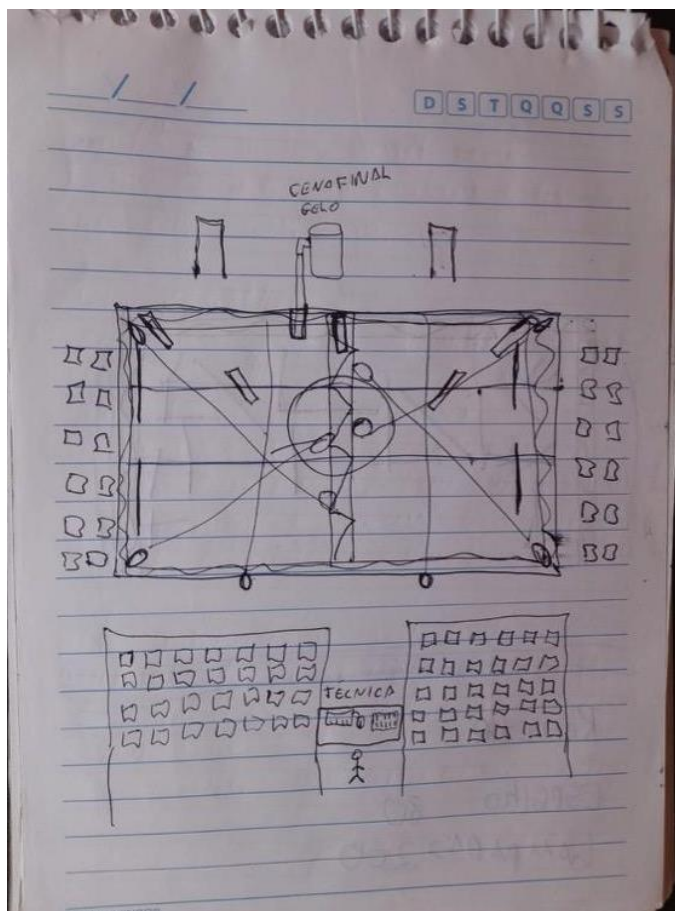 D S T Q Q S S
CENA FINAL
GELO
TÉCNICA